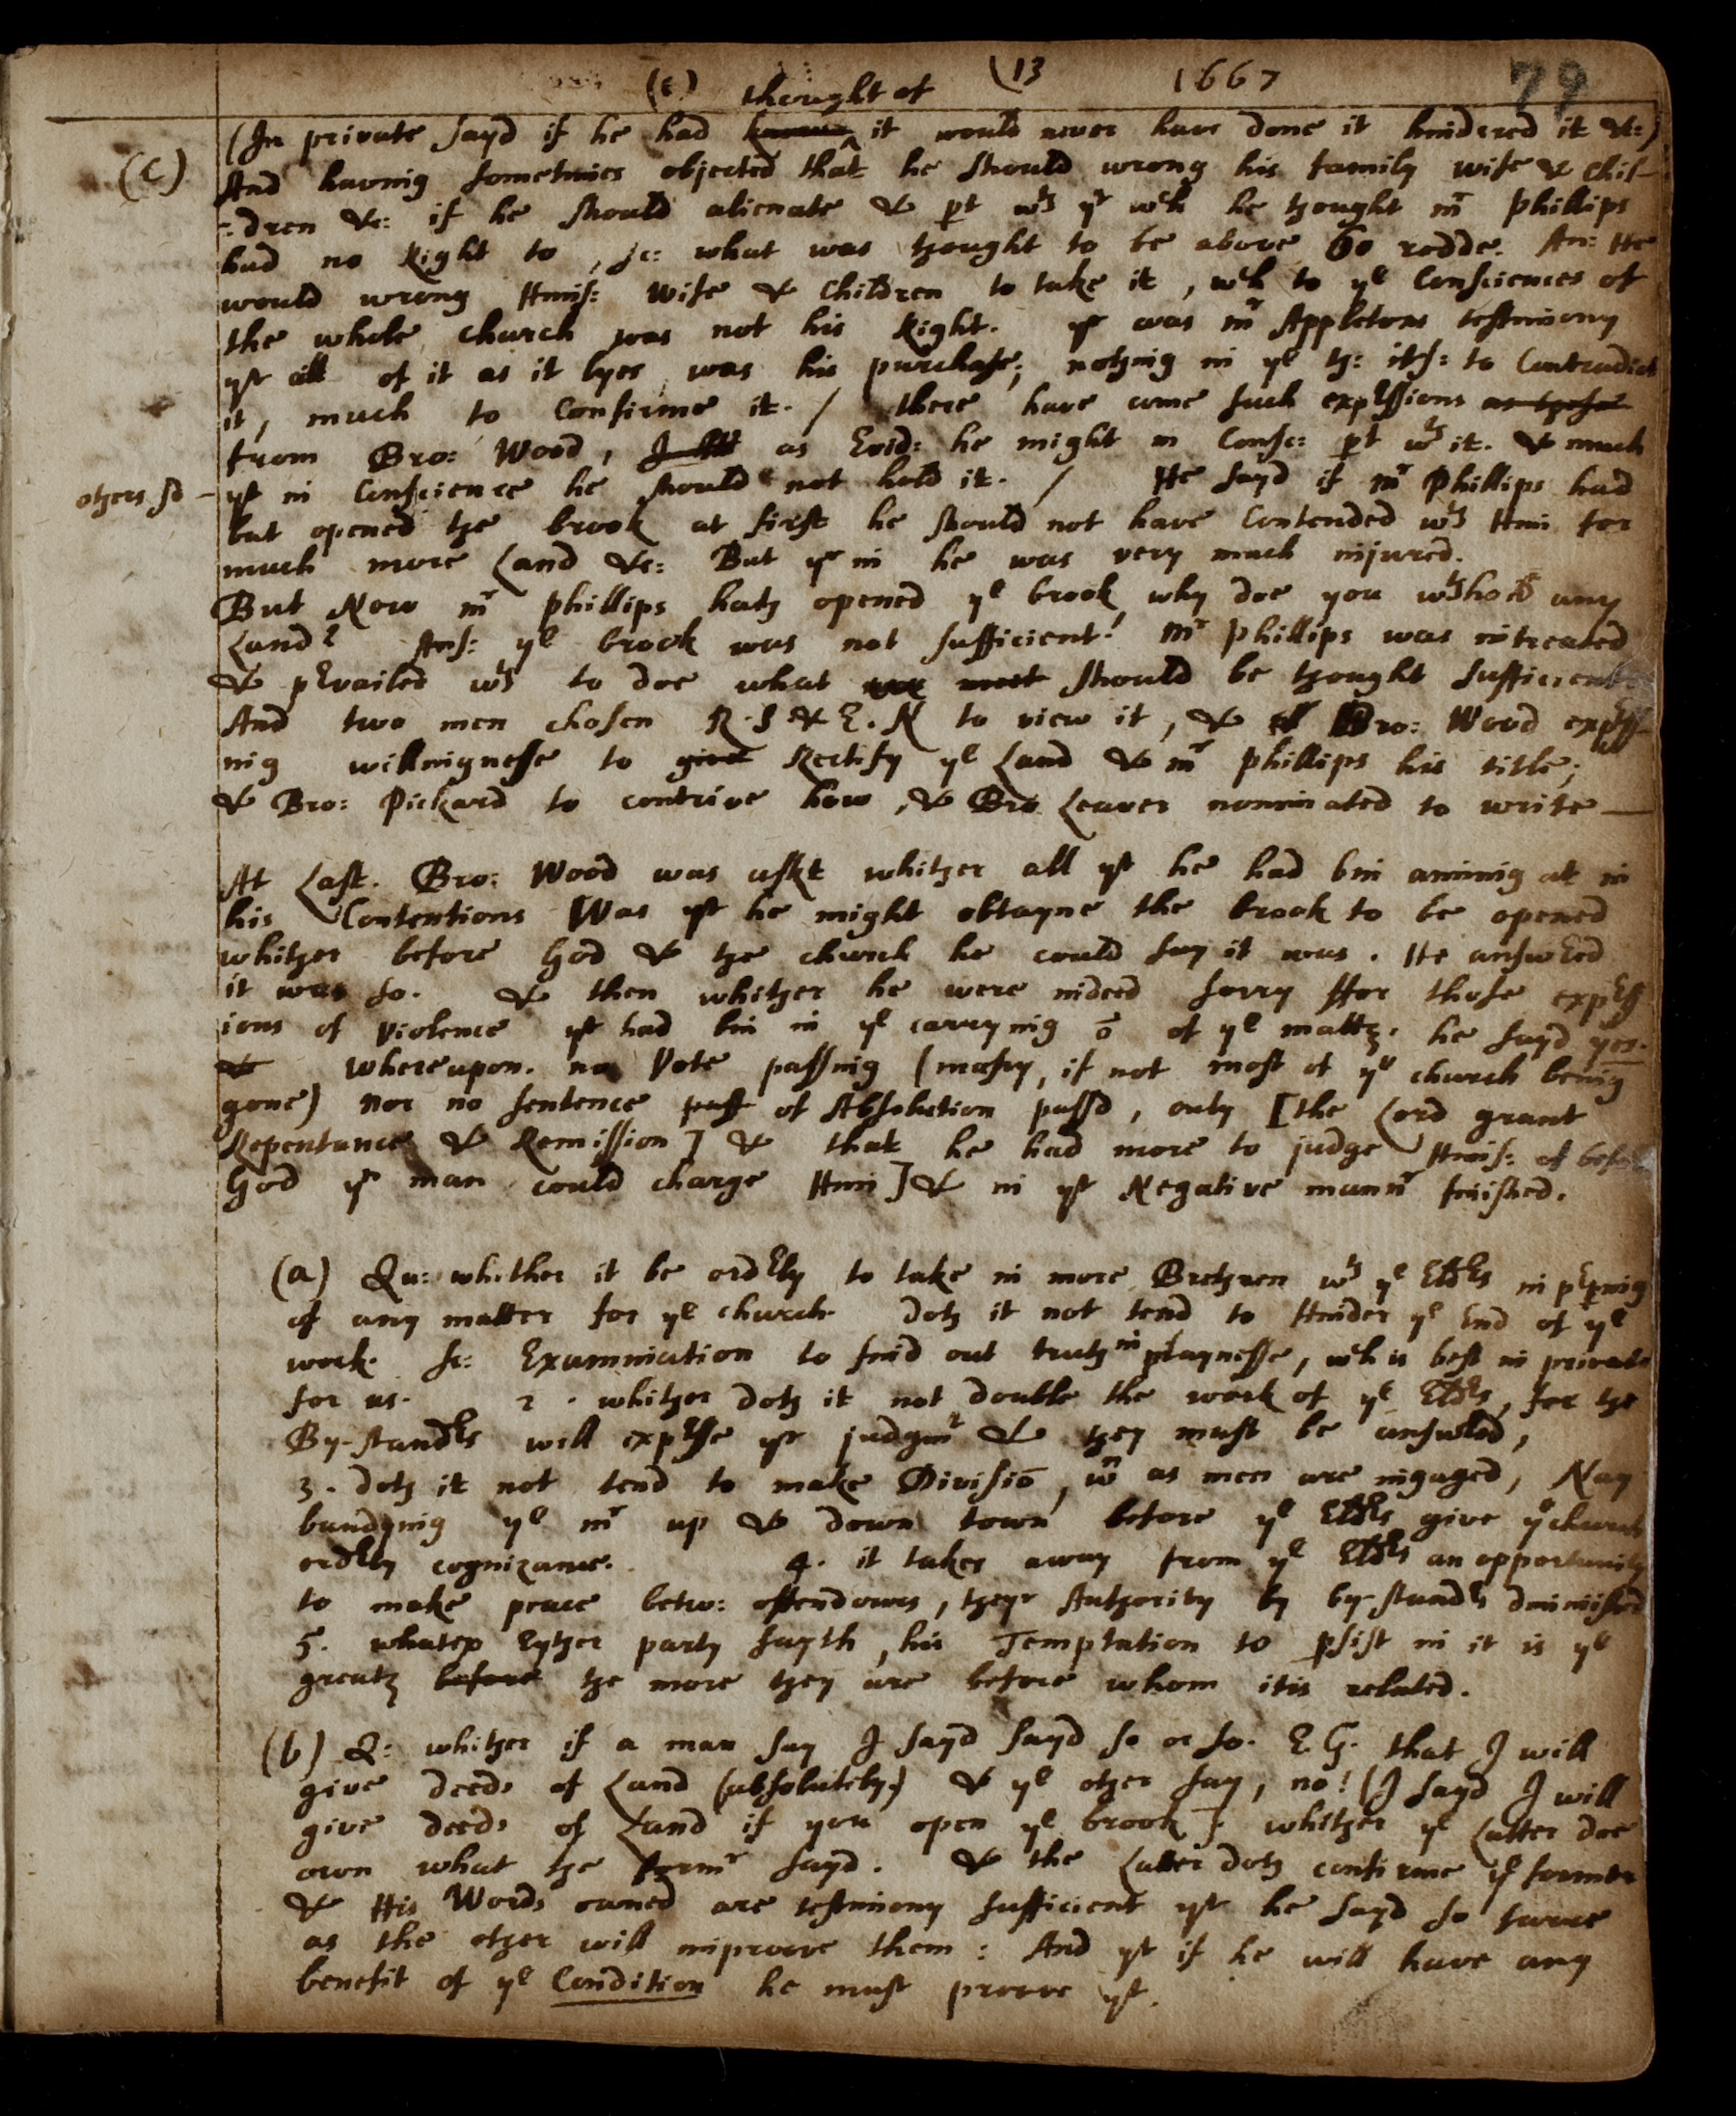 (c) thought of (13 1667 79
(In private sayd if he had knowne ^ it would never have done it hindered it &c:)
(C) And having sometimes objected that he should wrong his family wife & Chil-
=dren &c: if he should alienate & pt wth yt wch he thought mr Phillips
had no Right to, sc: what was thought to be above 60 rodde. An: He
would wrong Hims: Wife & Children to take it, wch to ye Consciences of
the whole church was not his Right. yr was mr Appletons testimony
yt all of it as it lyes was his purchase; nothing in ye th: its: to Contradict
it, much to Confirme it. / there have come such expressions as these
from Bro: Wood, as Evid: he might in Consc: pt wth it. & much
others sd - yt in Conscience he should not hold it. / He sayd if mr Phillips had
but opened the brook at first he should not have Contended wth Him for
much more Land &c: But yr in he was very much injured.
But Now mr phillips hath opened ye brook why doe you wthhold any
Land? Ans: ye brook was not sufficient! mr phillips was intreated
& pevailed wth to doe what was meet should be thought sufficient
And two men chosen R.S & E.N to view it, & Bro: Wood express-
ing willingnesse to give Rectify ye Land & mr phillips his title;
& Bro: Pickard to contrive how, & Bro Leaver nominated to write —
At Last. Bro: Wood was askt whither all yt he had bin aiming at in
his Contentions Was yt he might obtayne the brook to be opened
whither before God & the church he could say it was. He answered
it was so. & then whither he were indeed sorry ffor those express
ions of violence yt had bin in ye carrying ō of ye matter. he sayd yes.
& whereupon. no Vote passing (many, if not most of ye church being
gone) nor no sentence past of Absolution passd, only [the Lord grant
Repentance & Remission] & that he had more to judge Hims: of before
God yn man could charge Him] & in yt Negative mannr finished.
(a) Qu: whither it be orderly to take in more Brethren wth ye Elders in preparing
of any matter for ye church. Doth it not tend to Hinder ye End of ye
work. sc: Examination to find out truth in playnesse, wch is best in private
for us. 2. whither doth it not double the work of ye Elders, for the
By-standers will expresse yr judgmt & they must be answered,
3. doth it not tend to make Divisiō, wn as men are ingaged, Nay
bandying ye mr up & down town before ye Elders give ye church
orderly cognizance. 4. it takes away from ye Elders an opportunity
to make peace betw: offendours, theyr Authority by by-standers diminished
5. whatev Eyther party sayth, his Temptation to psist in it is ye
greater before the more they are before whom itis related.
(b) Q: whither if a man say I sayd sayd so or so. E.G. that I will
give deeds of Land (absolutely) & ye other say, no! (I sayd I will
give deeds of Land if you open ye brook] whither ye Latter doe
own what the formr sayd. & the Latter doth confirme ye former
& His Words owned are testimony sufficient yt he sayd so farre
as the other will improove them: And yt if he will have any
benefit of ye Condition he must proove yt.